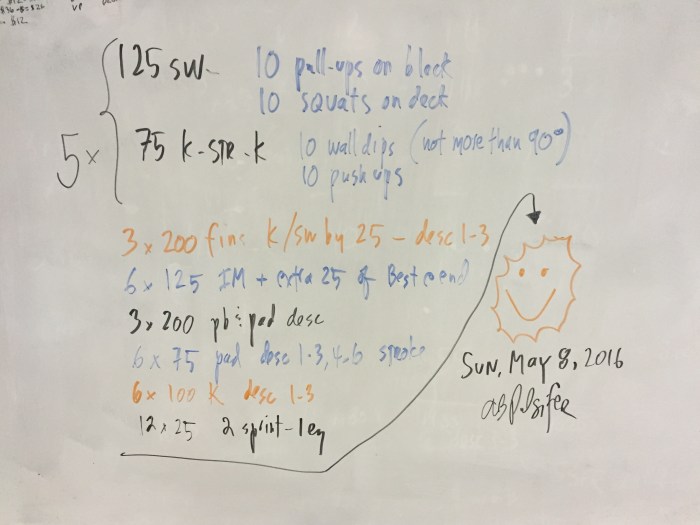 5x
125 sw 10 pull-ups on block
10 squats on deck
75 k-str-k 10 wall dips (not more than 90°)
10 push ups
3 x 200 fins k/sw by 25 - desc 1-3
6 x 125 IM + extra 25 of Best @ end
3 x 200 pb & pad desc
6 x 75 pad desc 1-3, 4-6 stroke
6 x 100 K desc 1-3
12 x 25 2 sprint-1 ey
Sun, May 8, 2016